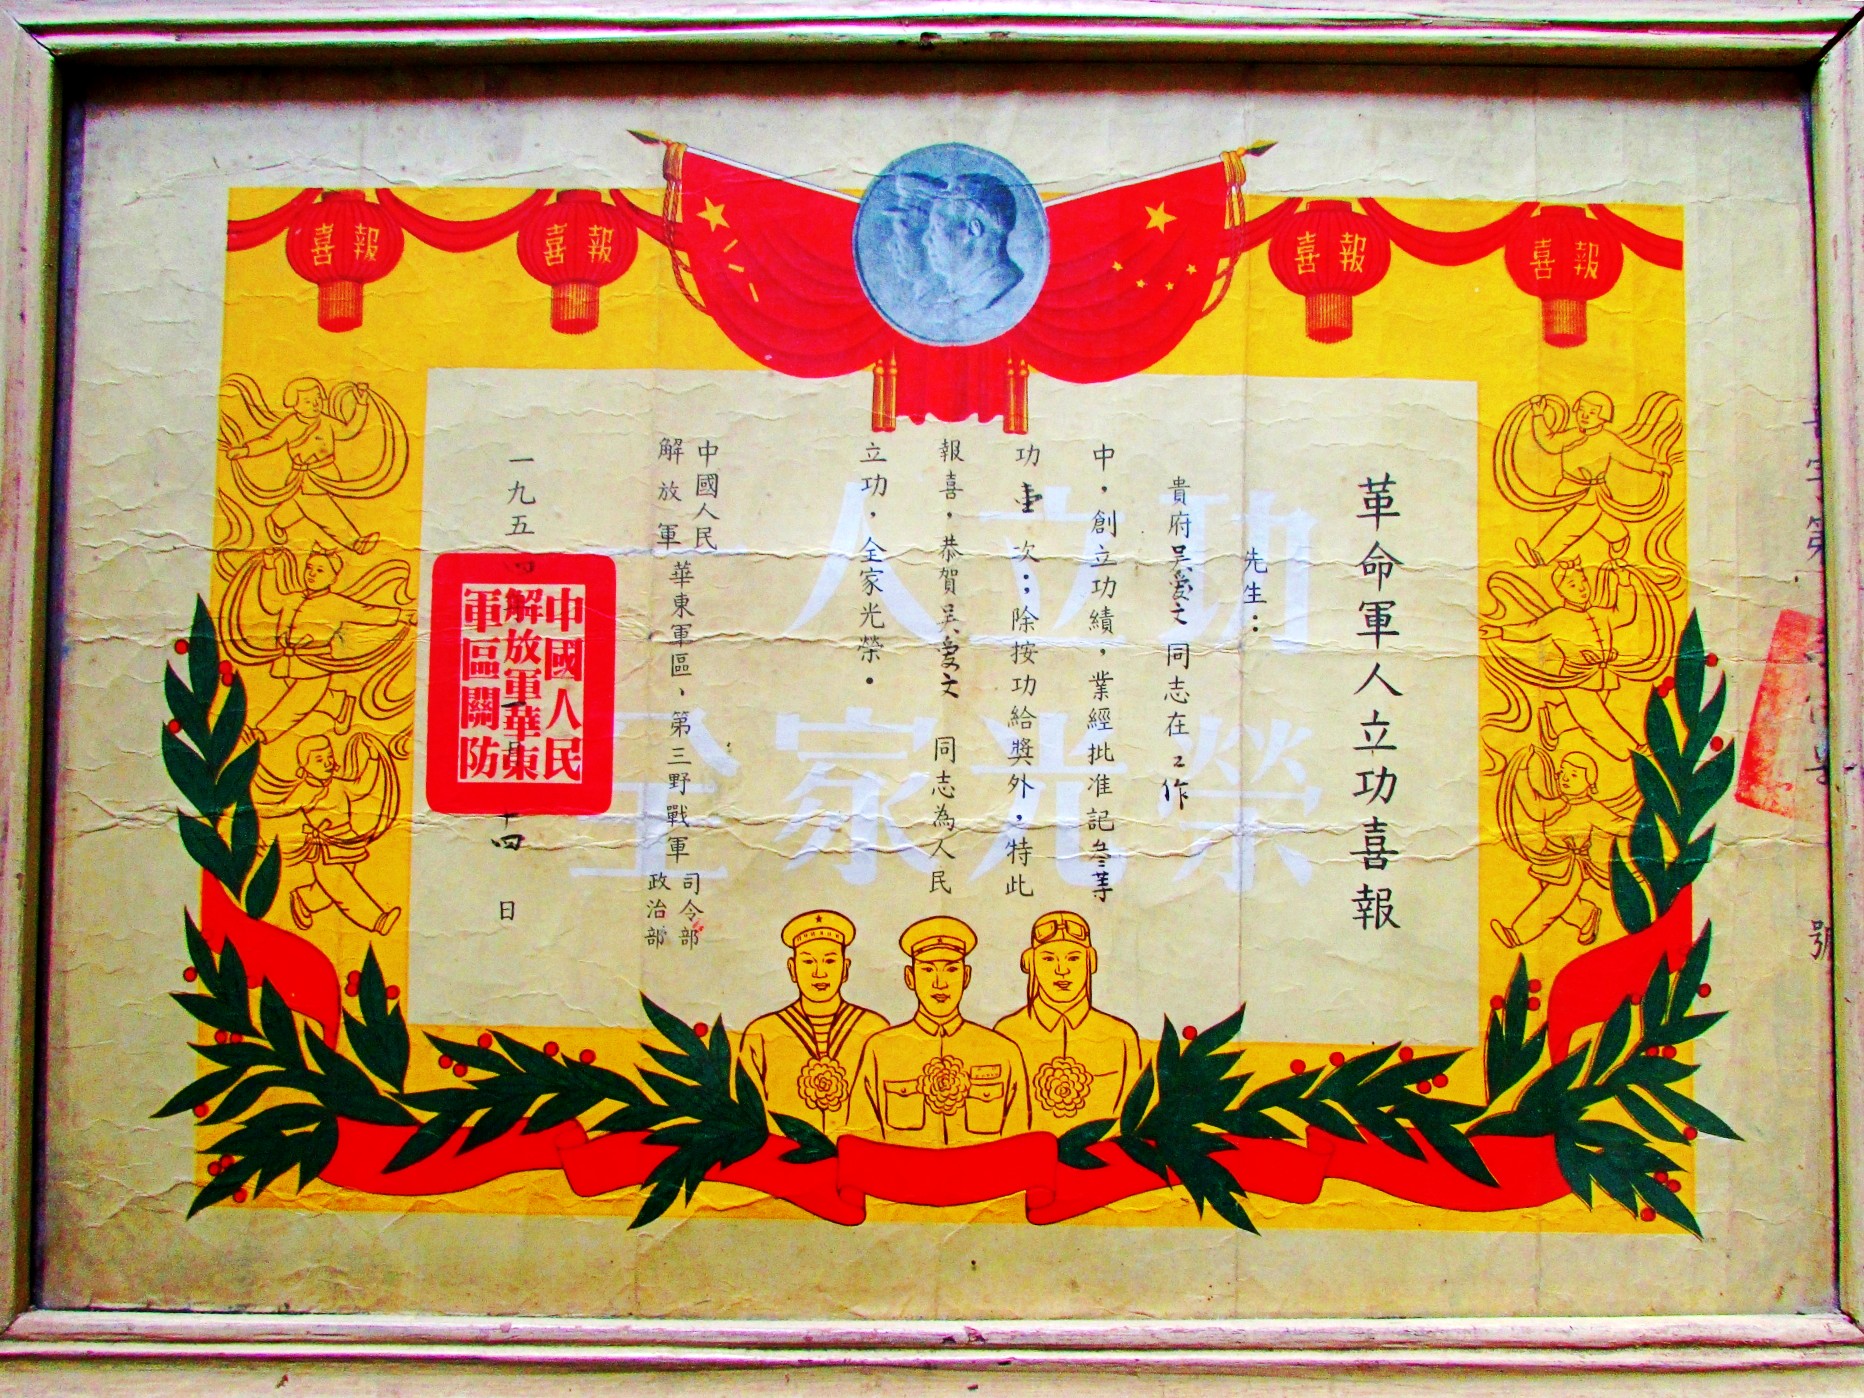 喜報
喜報
喜報
喜報
八一
革命軍人立功喜報
先生：
貴府吳愛文同志在工作
中，創立功績，業經批准記叁等
功壹次；除按功給獎外，特此
報喜，恭賀吳愛文同志為人民
立功，全家光榮．
中國人民
解放軍
華東軍區、第三野戰軍
司令部
政治部
一九五
十四日
中國人民
解放軍華東
軍區關防
一人立功
全家光榮
字第
號